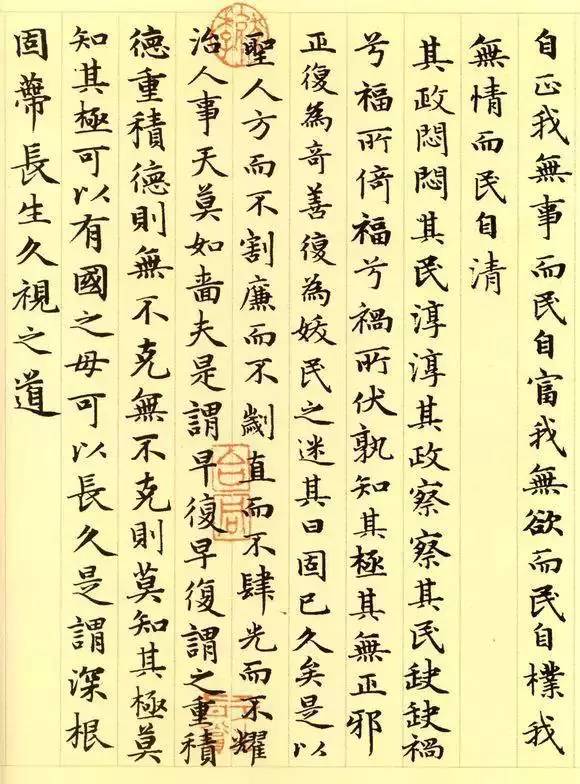 自正我無事而民自富我無欲而民自樸我
無情而民自清
其政悶悶其民淳淳其政察察其民缺缺禍
兮福所倚福兮禍所伏孰知其極其無正邪
正復為奇善復為妖民之迷其日固已久矣是以
聖人方而不割廉而不劌直而不肆光而不耀
治人事天莫如嗇夫是謂早復早復謂之重積
德重積德則無不克無不克則莫知其極莫
知其極可以有國之母可以長久是謂深根
固蔕長生久視之道